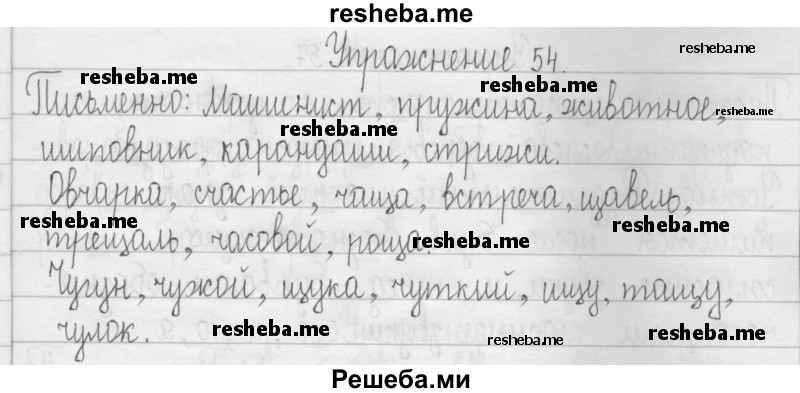 resheba.me
Упражнение 54.
resheba.me
resheba.me
resheba.me
Письменно: Машинист, пружина, животное,
resheba.me
resheba.me
шиповник, карандаши, стрижи.
Овчарка, счастье, чаща, встреча, щавель,
resheba.me
resheba.me
трещаль, часовой, роща.
resheba.me
Чугун, чужой, щука, чуткий, ищу, тащу,
чулок.
resheba.me
resheba.me
resheba.me
Решеба.ми